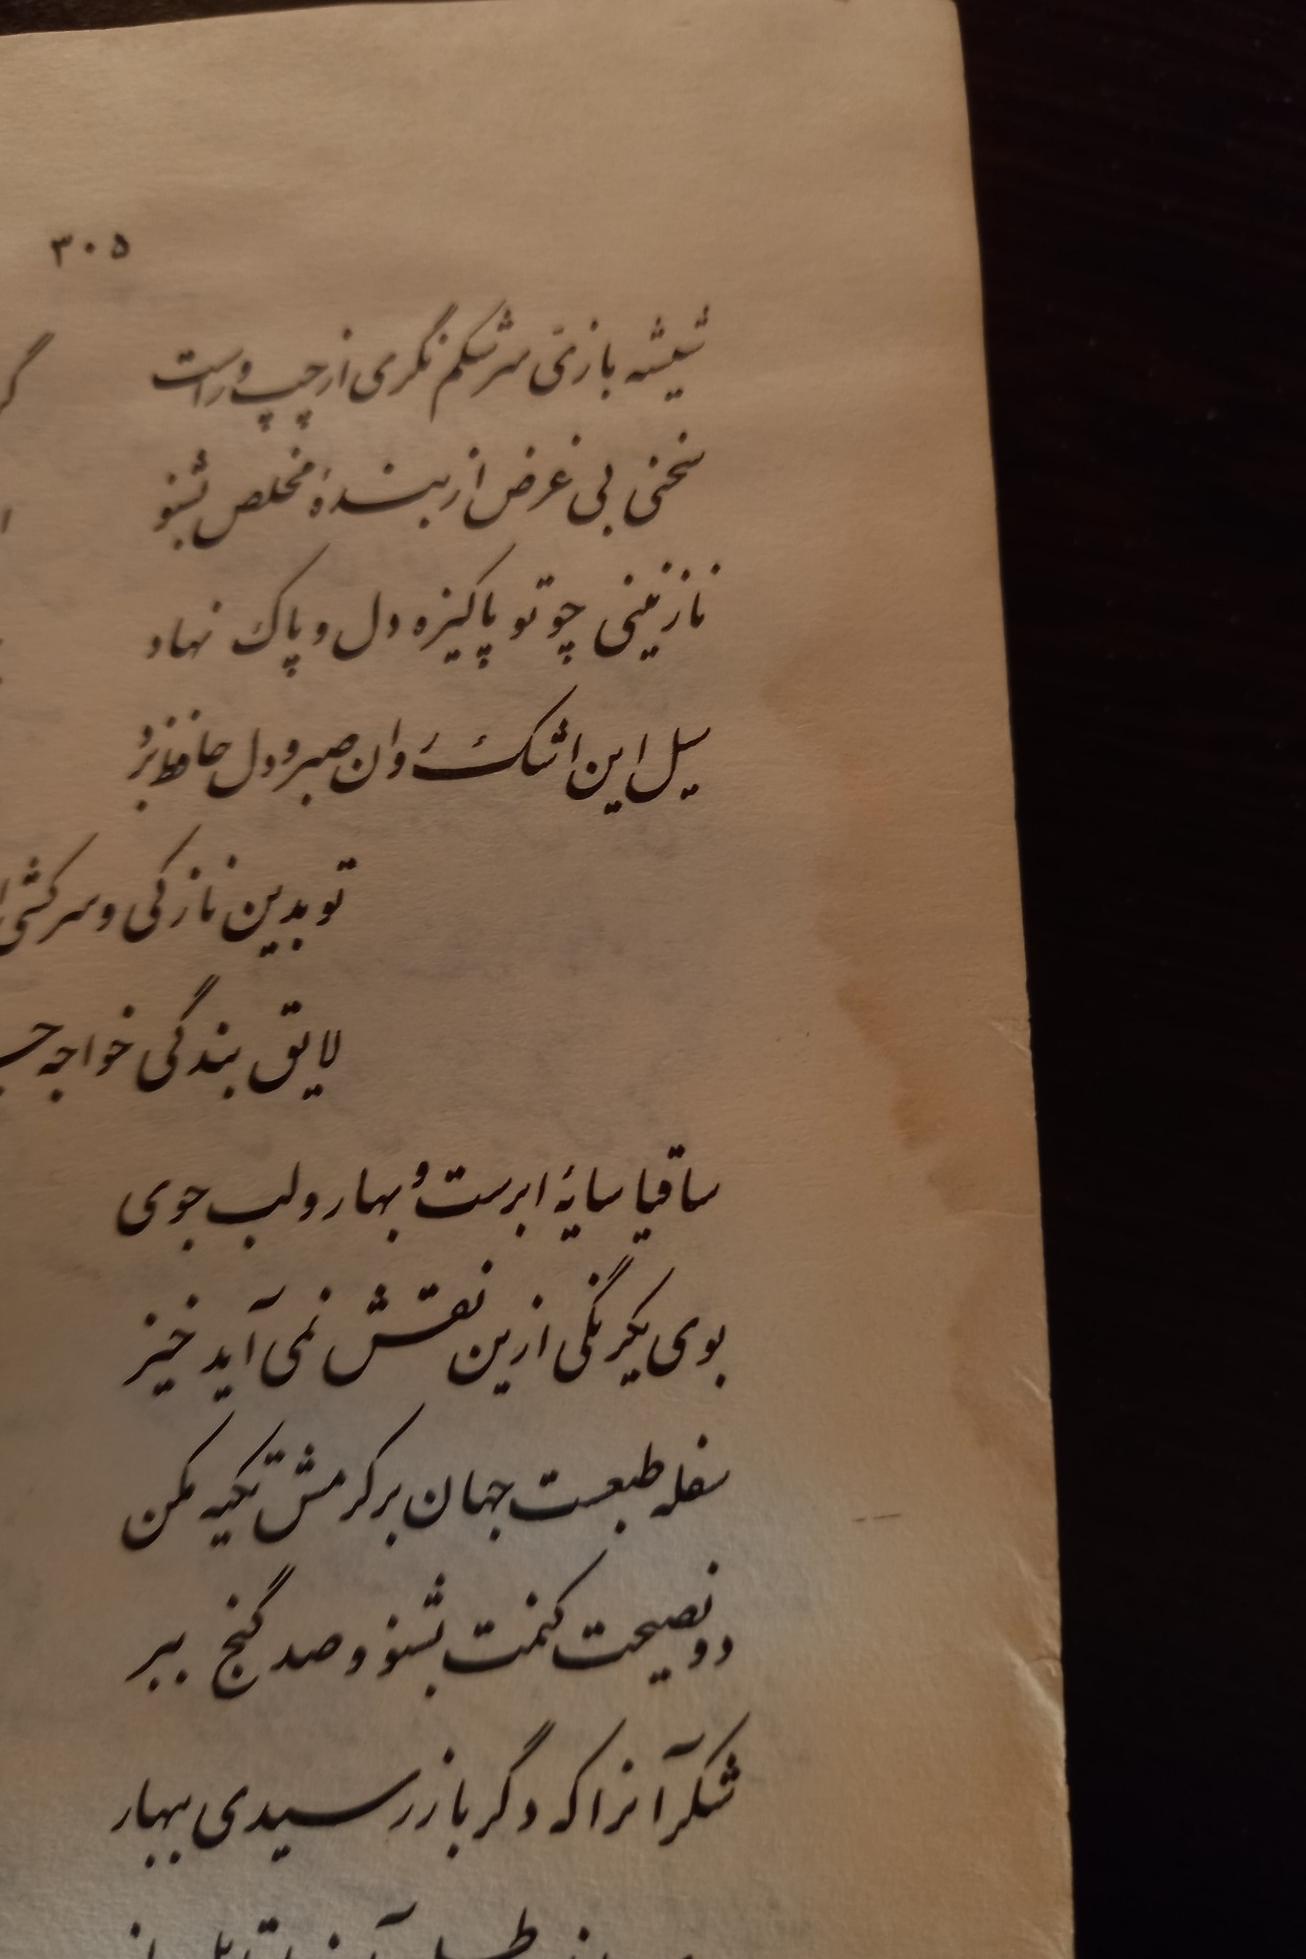 ۳۰۵
شیشه بازی سرشکم نگری از چپ و راست
سخنی بی غرض از بندهٔ مخلص بشنو
نازنینی چو تو پاکیزه دل و پاک نهاد
سیل این اشک روان صبر و دل حافظ برد
تو بدین نازکی و سرکشی
لایق بندگی خواجه
ساقیا سایهٔ ابرست و بهار و لب جوی
بوی یکرنگی ازین نقش نمی آید خیز
سفله طبعست جهان بر کرمش تکیه مکن
دو نصیحت کنمت بشنو و صد گنج ببر
شکر آنرا که دگر باز رسیدی ببهار